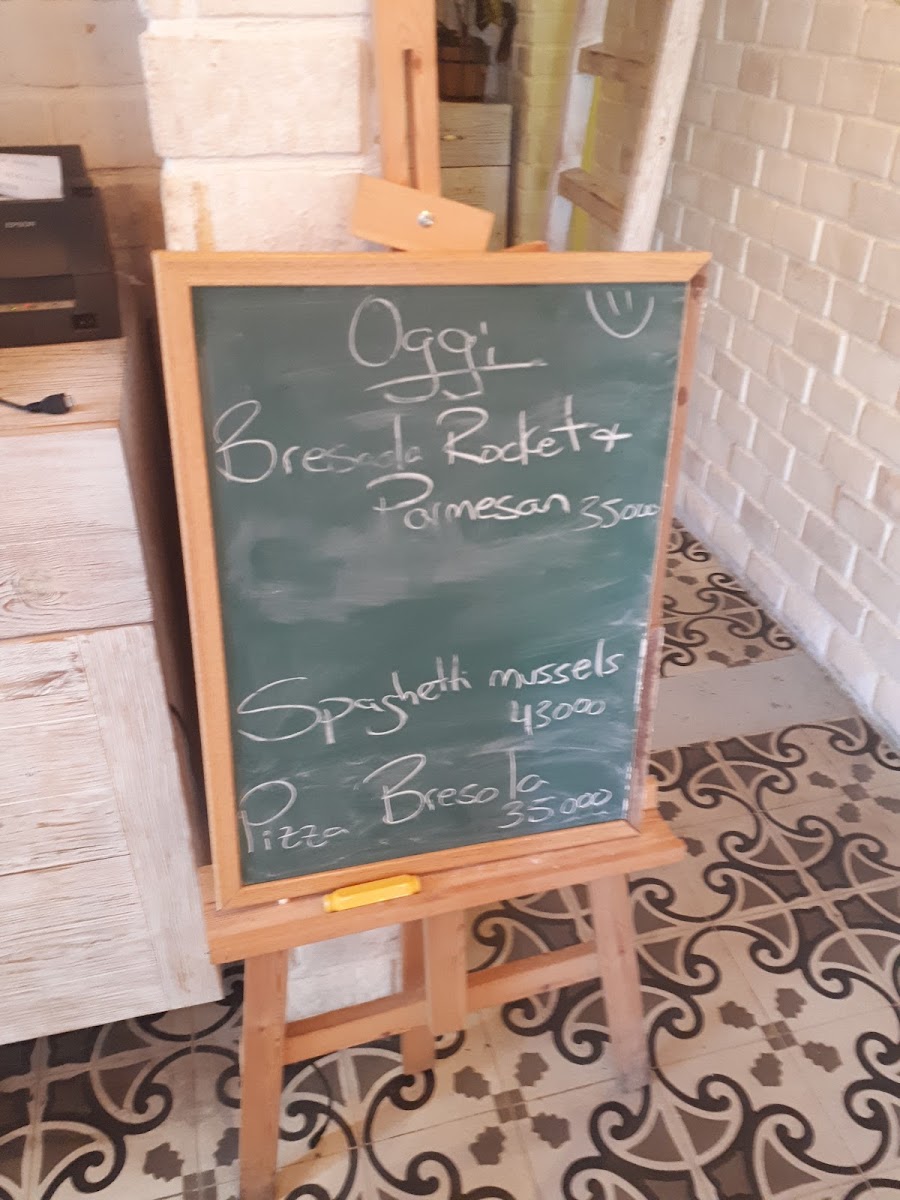 EPSON
Oggi
Bresaola Rocket +
Parmesan 35000
Spaghetti mussels
43000
Pizza Bresola
35000